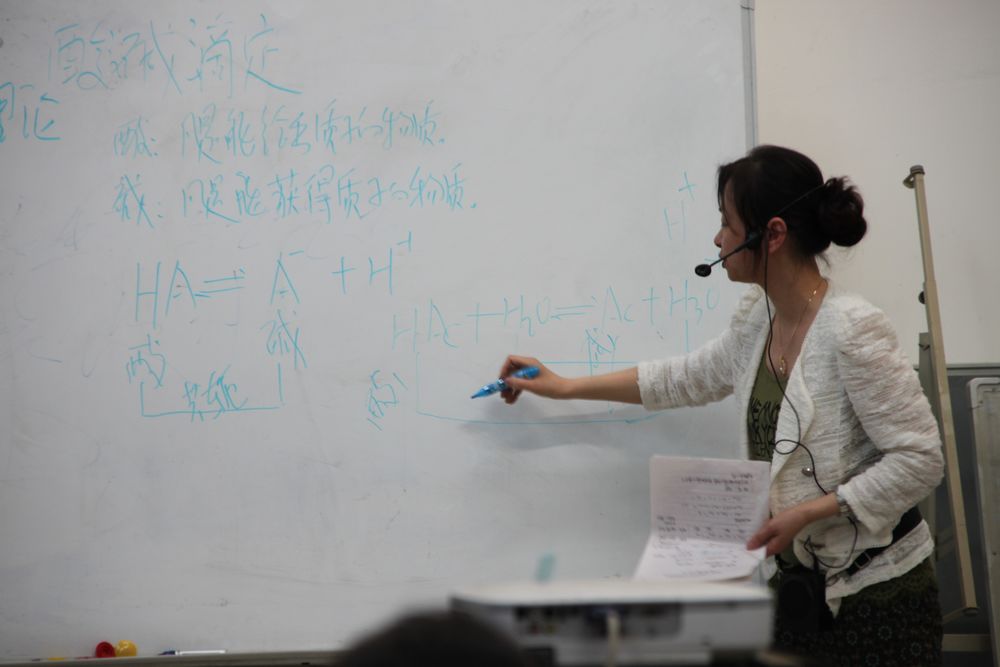 酸碱滴定
理论
酸：凡是能给出质子的物质。
碱：凡是能获得质子的物质。
HA ⇌ A⁻ + H⁺
酸 碱
共轭
H⁺
HAc + H₂O ⇌ Ac + H₃O
酸 碱